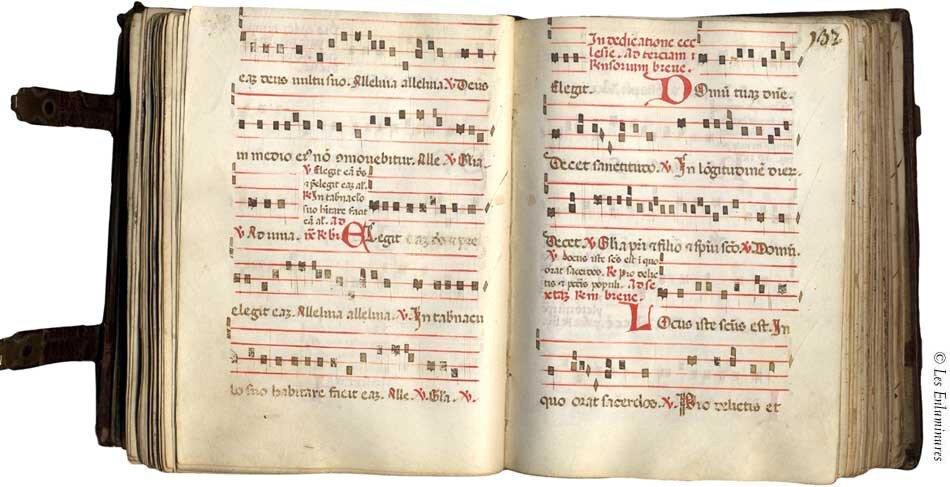 eaz deus vultu suo. Alleluia alleluia. V. Deus
in medio ei⁹ nō ꝯmovebitur. Alle. V. Glia.
V. Elegit eā dō
⁊ p̄elegit eaz al.
R. In tabnaclo
suo hītare facit
eā al. Ad
V. Adiuva. nōē R. br̄
Elegit eaz dō ⁊ pre
elegit eaz. Alleluia alleluia. V. In tabnacu
lo suo habitare facit eaz. Alle. V. Glia. V.
132
In dedicatione ecc
lesie. Ad terciam ⁊
Responsorum breve.
Elegit. Domū tuaz dn̄e.
Decet sanctitudo. V. In lōgitudinē dier.
Decet. V. Glia pr̄i ⁊ filio ⁊ sp̄iu scō. V. Domū.
V. Locus iste scs̄ est ī quo
orat sacerdos. R. Pro delic
tis ⁊ pctīs populi. Ad se
xtaz Rem breve.
Locus iste scūs est. In
quo orat sacerdos. V. Pro delictis et
© Les Enluminures